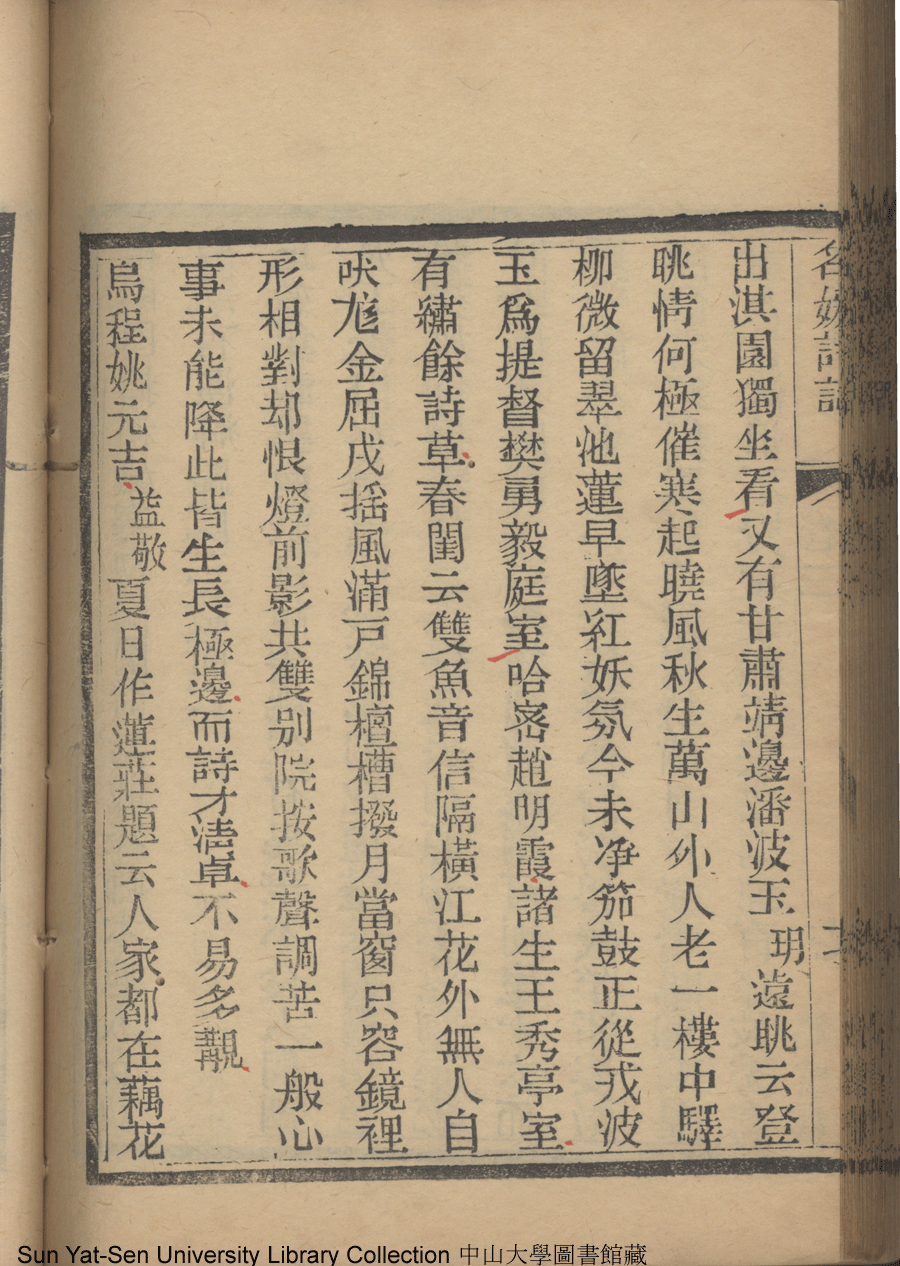 名媛詩話
出淇園獨坐看又有甘肅靖邊潘波玉玥遠眺云登
眺情何極催寒起曉風秋生萬山外人老一樓中驛
柳微留翠池蓮早墜紅妖氛今未净笳鼓正從戎波
玉爲提督樊勇毅庭室哈密趙明霞諸生王秀亭室
有繡餘詩草春閨云雙魚音信隔橫江花外無人自
吠尨金屈戌搖風滿戸錦檀槽撥月當窗只容鏡裡
形相對却恨燈前影共雙别院按歌聲調苦一般心
事未能降此皆生長極邊而詩才淸卓不易多覯
烏程姚元吉益敬夏日作蓮莊題云人家都在藕花
Sun Yat-Sen University Library Collection 中山大學圖書館藏